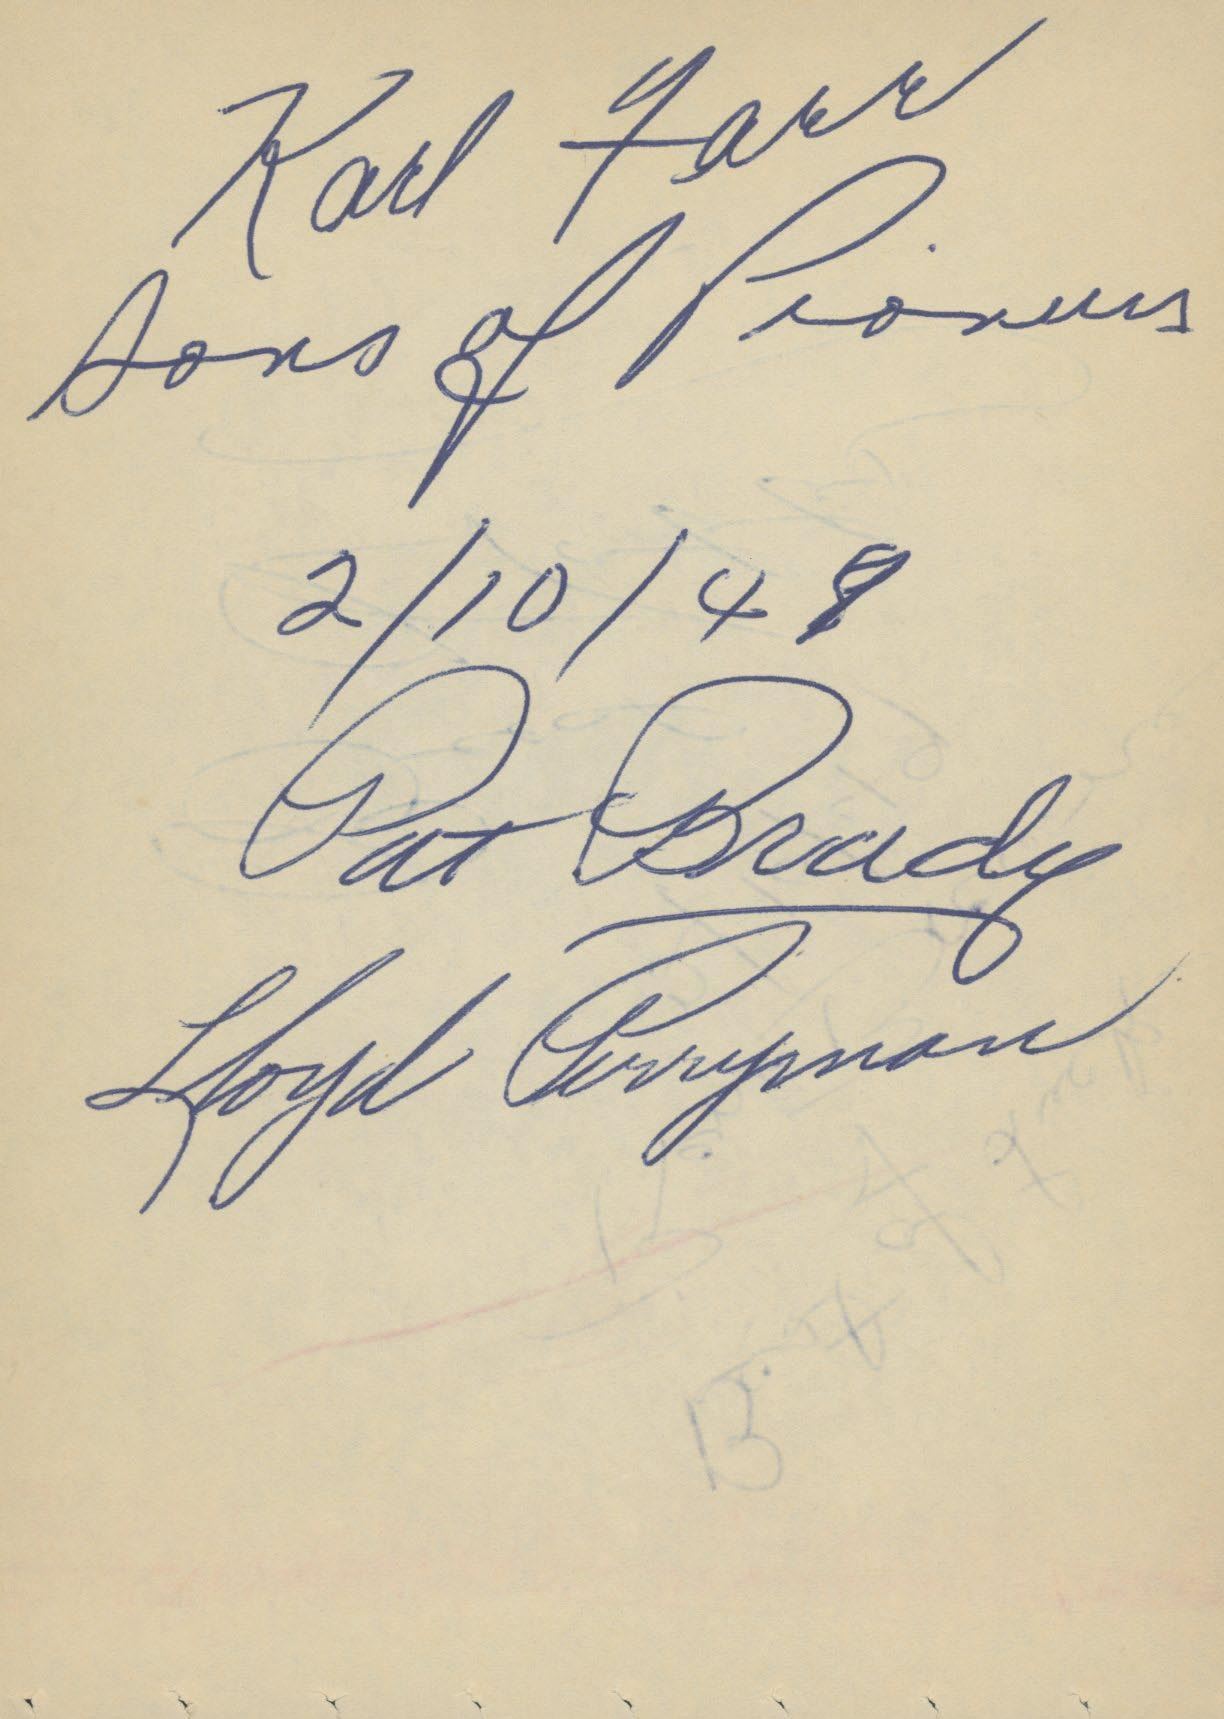 Karl Farr
Sons of Pioneers
2/10/49
Pat Brady
Lloyd Perryman